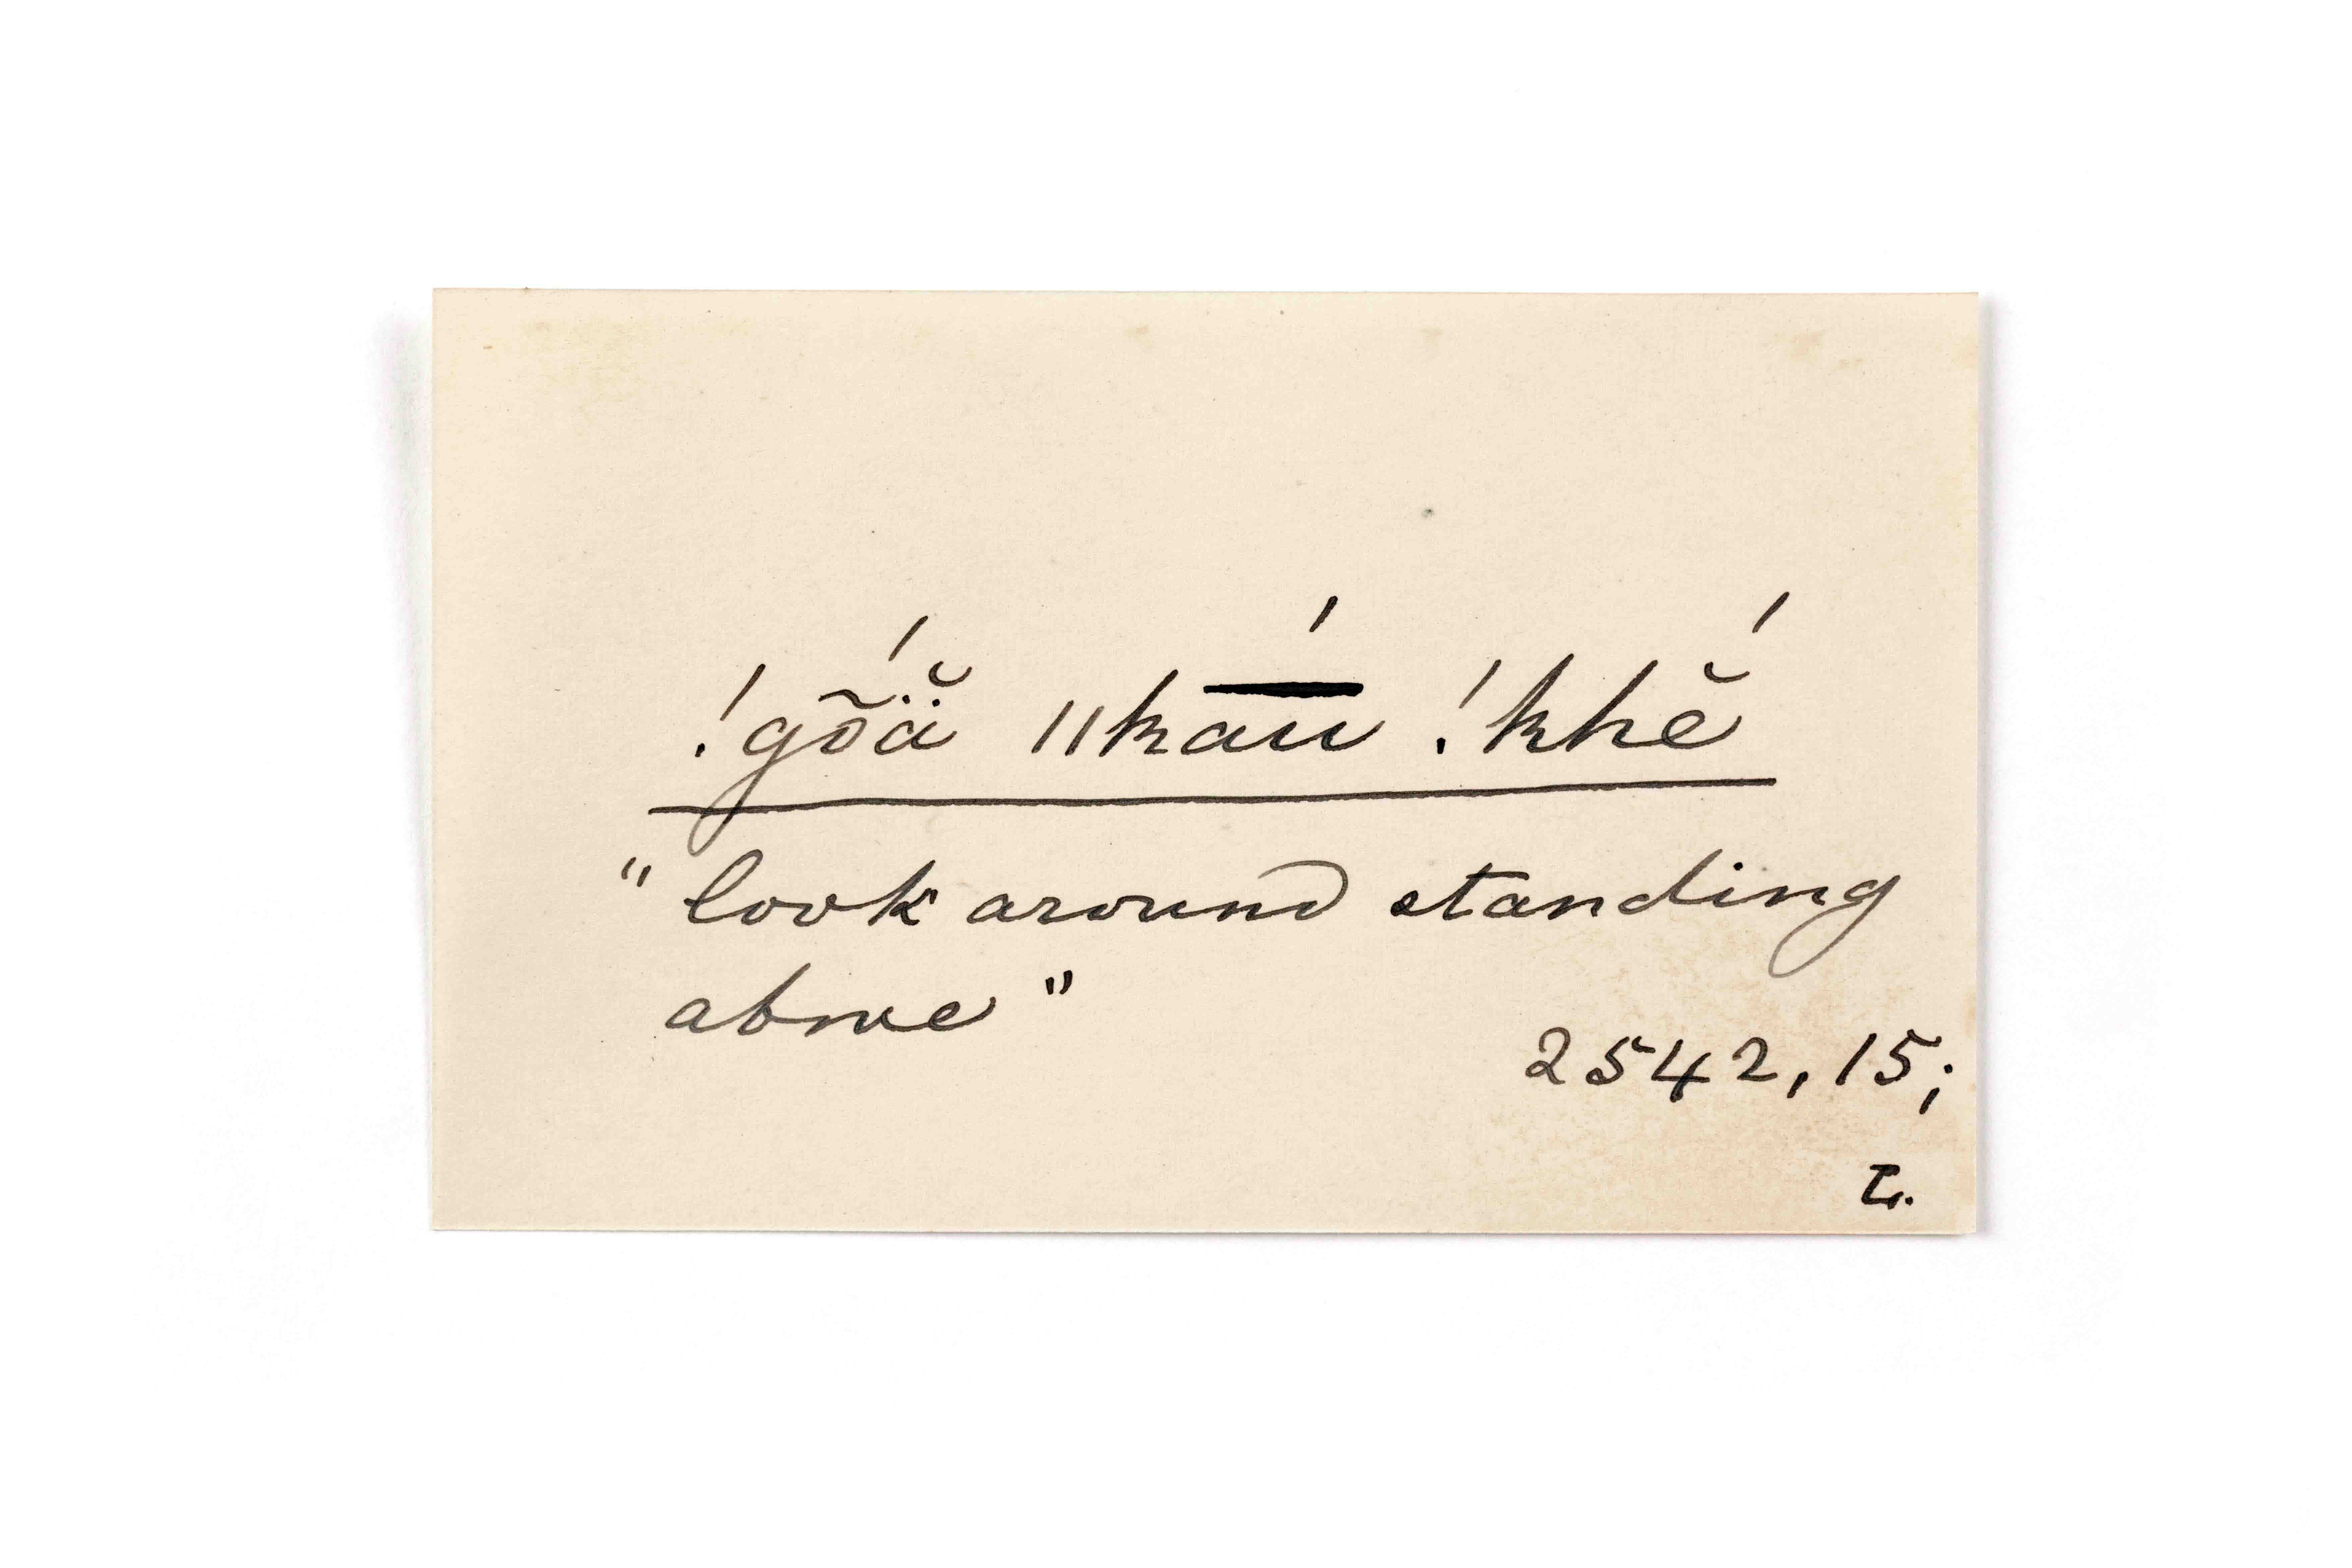 !gṏ́ä̆ ǁka̅ú !khĕ́
"look around standing
above"
2542, 15;
L.